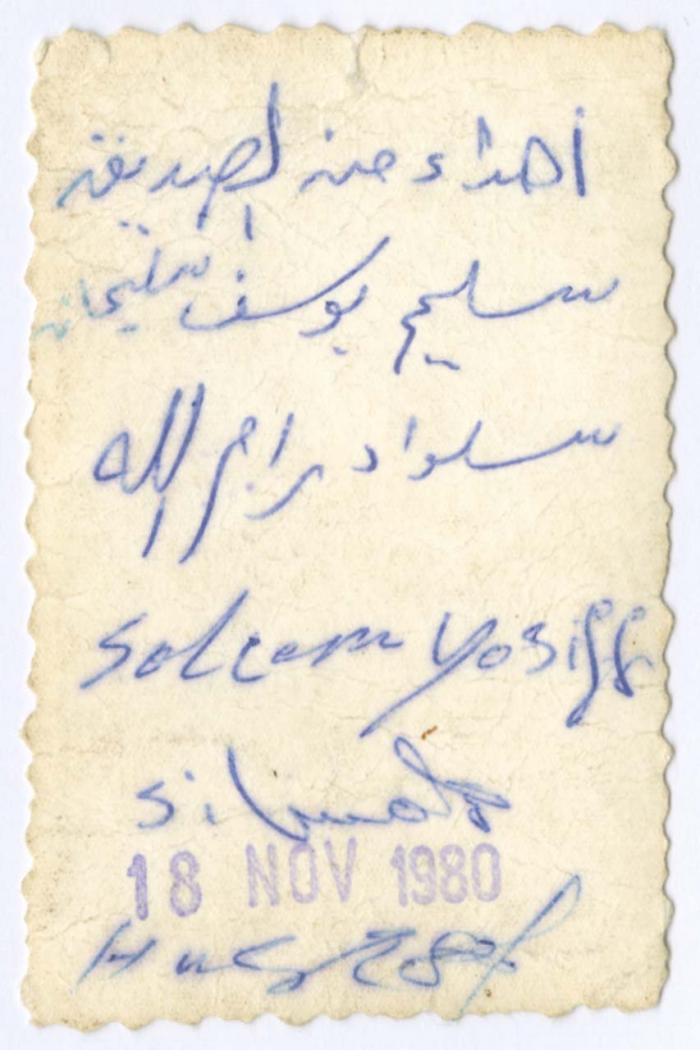 اهداء من الصديق
سليم يوسف سليمان
سلواد رام الله
Saleem Yosiff
18 NOV 1980